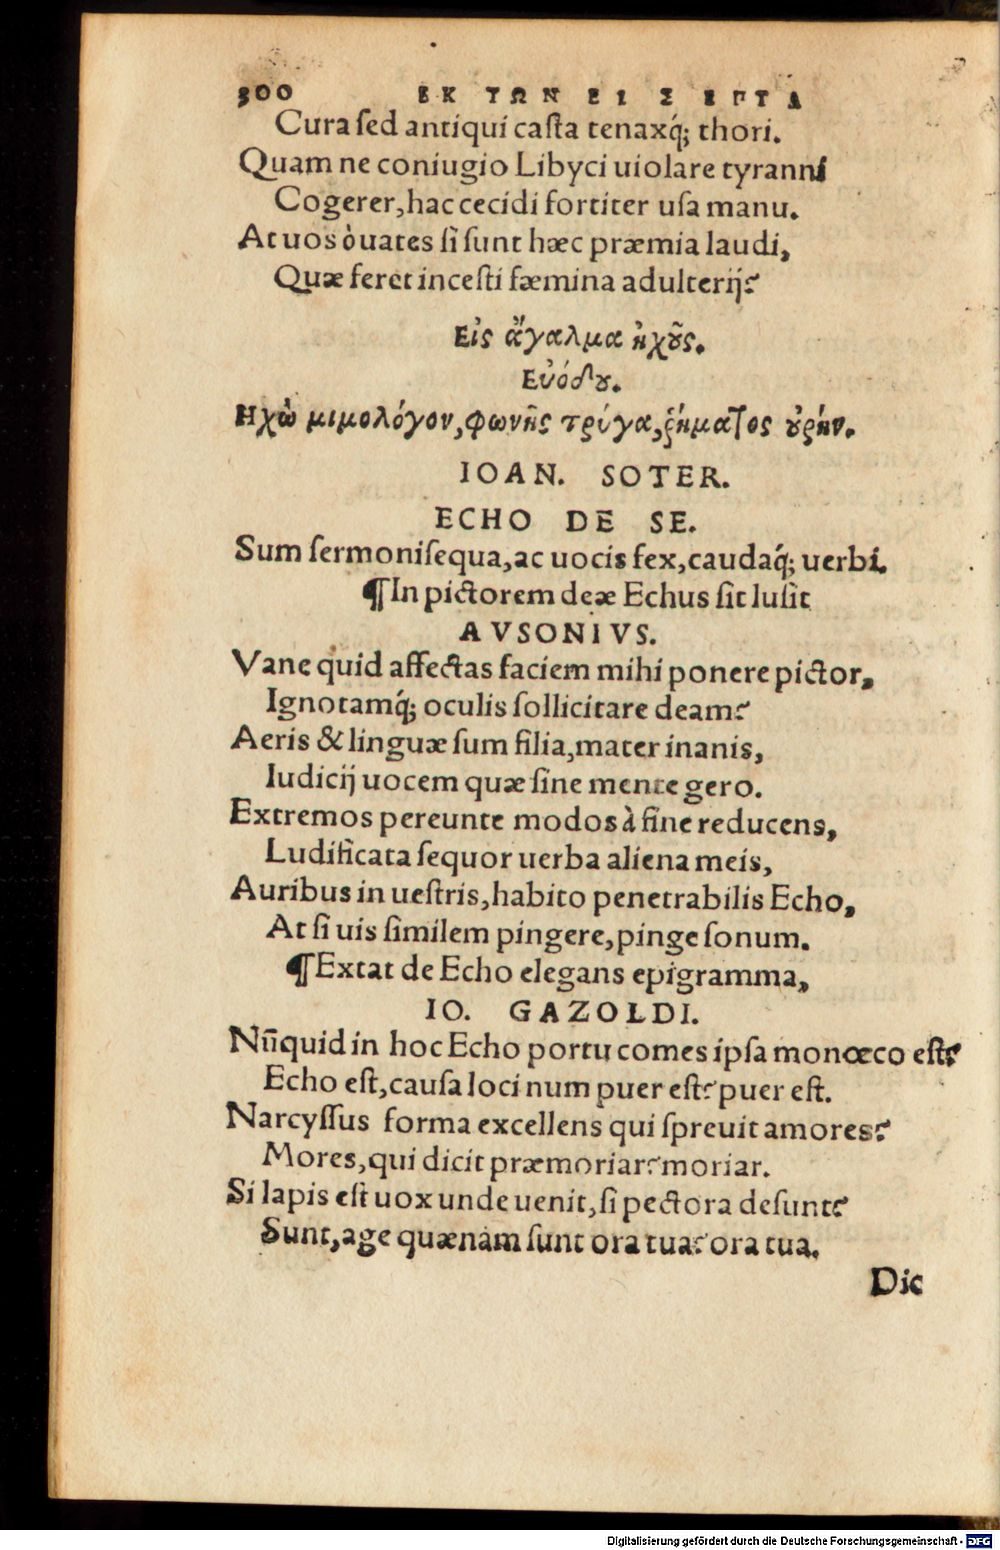 300 ΕΚ ΤΩΝ ΕΙΣ ΕΡΓΑ
Cura sed antiqui casta tenaxq́; thori.
Quam ne coniugio Libyci uiolare tyranni
Cogerer, hac cecidi fortiter usa manu.
At uos ò uates si sunt hæc præmia laudi,
Quæ feret incesti fæmina adulterij?
Εἰς ἄγαλμα ἠχοῦς.
Εὐόδου.
Ηχὼ μιμολόγον, φωνῆς τρύγα, ῥήματος οὐρήν.
IOAN. SOTER.
ECHO DE SE.
Sum sermonisequa, ac uocis fex, caudaq́; uerbi.
¶In pictorem deæ Echus sic lusit
AVSONIVS.
Vane quid affectas faciem mihi ponere pictor,
Ignotamq́; oculis sollicitare deam?
Aeris & linguæ sum filia, mater inanis,
Iudicij uocem quæ sine mente gero.
Extremos pereunte modos à fine reducens,
Ludificata sequor uerba aliena meis,
Auribus in uestris, habito penetrabilis Echo,
At si uis similem pingere, pinge sonum.
¶Extat de Echo elegans epigramma,
IO. GAZOLDI.
Nūquid in hoc Echo portu comes ipsa monœco est?
Echo est, causa loci num puer est? puer est.
Narcyssus forma excellens qui spreuit amores?
Mores, qui dicit præmoriar? moriar.
Si lapis est uox unde uenit, si pectora desunt?
Sunt, age quænam sunt ora tua? ora tua.
Dic
Digitalisierung gefördert durch die Deutsche Forschungsgemeinschaft - DFG